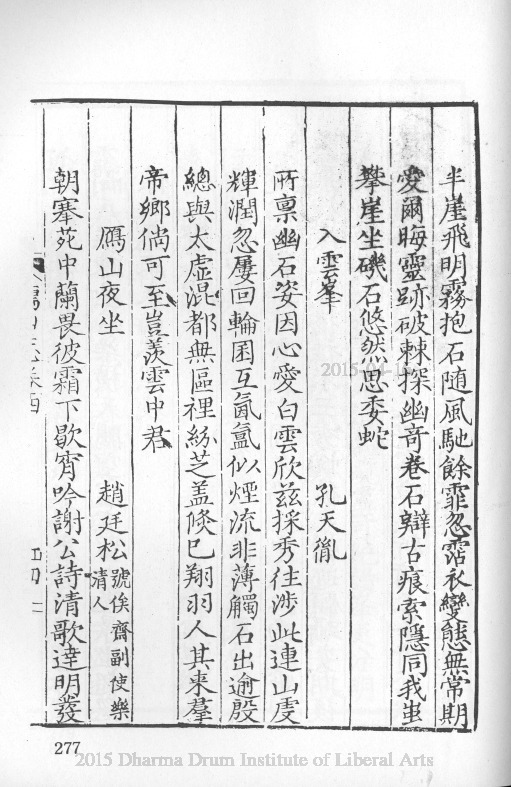 半崖飛明霧抱石随風馳餘霏忽霑衣變態無常期
愛爾晦靈跡破棘探幽奇卷石辯古痕索隱同我蚩
攀崖坐磯石悠然思委蛇
入雲峯 孔天胤
所禀幽石姿因心愛白雲欣兹採秀往涉此連山虔
輝潤忽屢回輪囷互氤氳似煙流非薄觸石出逾殷
總與太虛混都無區裡紛芝盖倐巳翔羽人其来羣
帝鄉倘可至豈羡雲中君
鴈山夜坐 趙廷松號俟齋副使樂清人
朝搴苑中蘭畏彼霜下歇宵吟謝公詩清歌達明發
277
2015-04-16
2015 Dharma Drum Institute of Liberal Arts